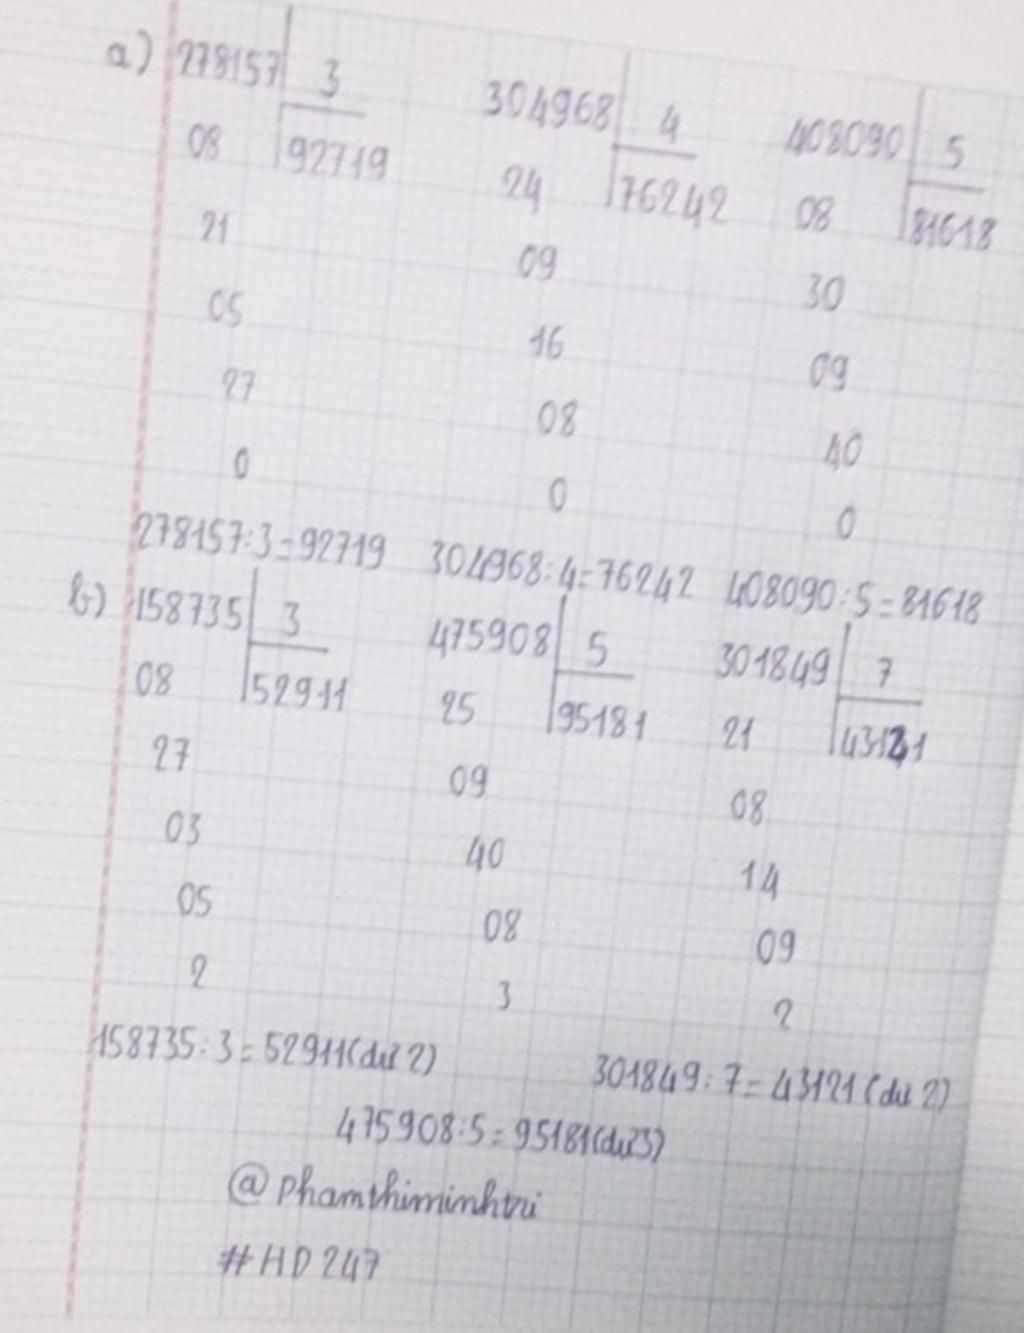 a) 278157 3 304968 4 408090 5
08 92719 24 76242 08 81618
21 09 30
05 16 09
27 08 40
0 0 0
278157:3=92719 304968:4=76242 408090:5=81618
b) 158735 3 475908 5 301849 7
08 52911 25 95181 21 43121
27 09 08
03 40 14
05 08 09
2 3 2
158735:3=52911(dư 2) 301849:7=43121(dư 2)
475908:5=95181(dư3)
@phamthiminhtri
#HD247